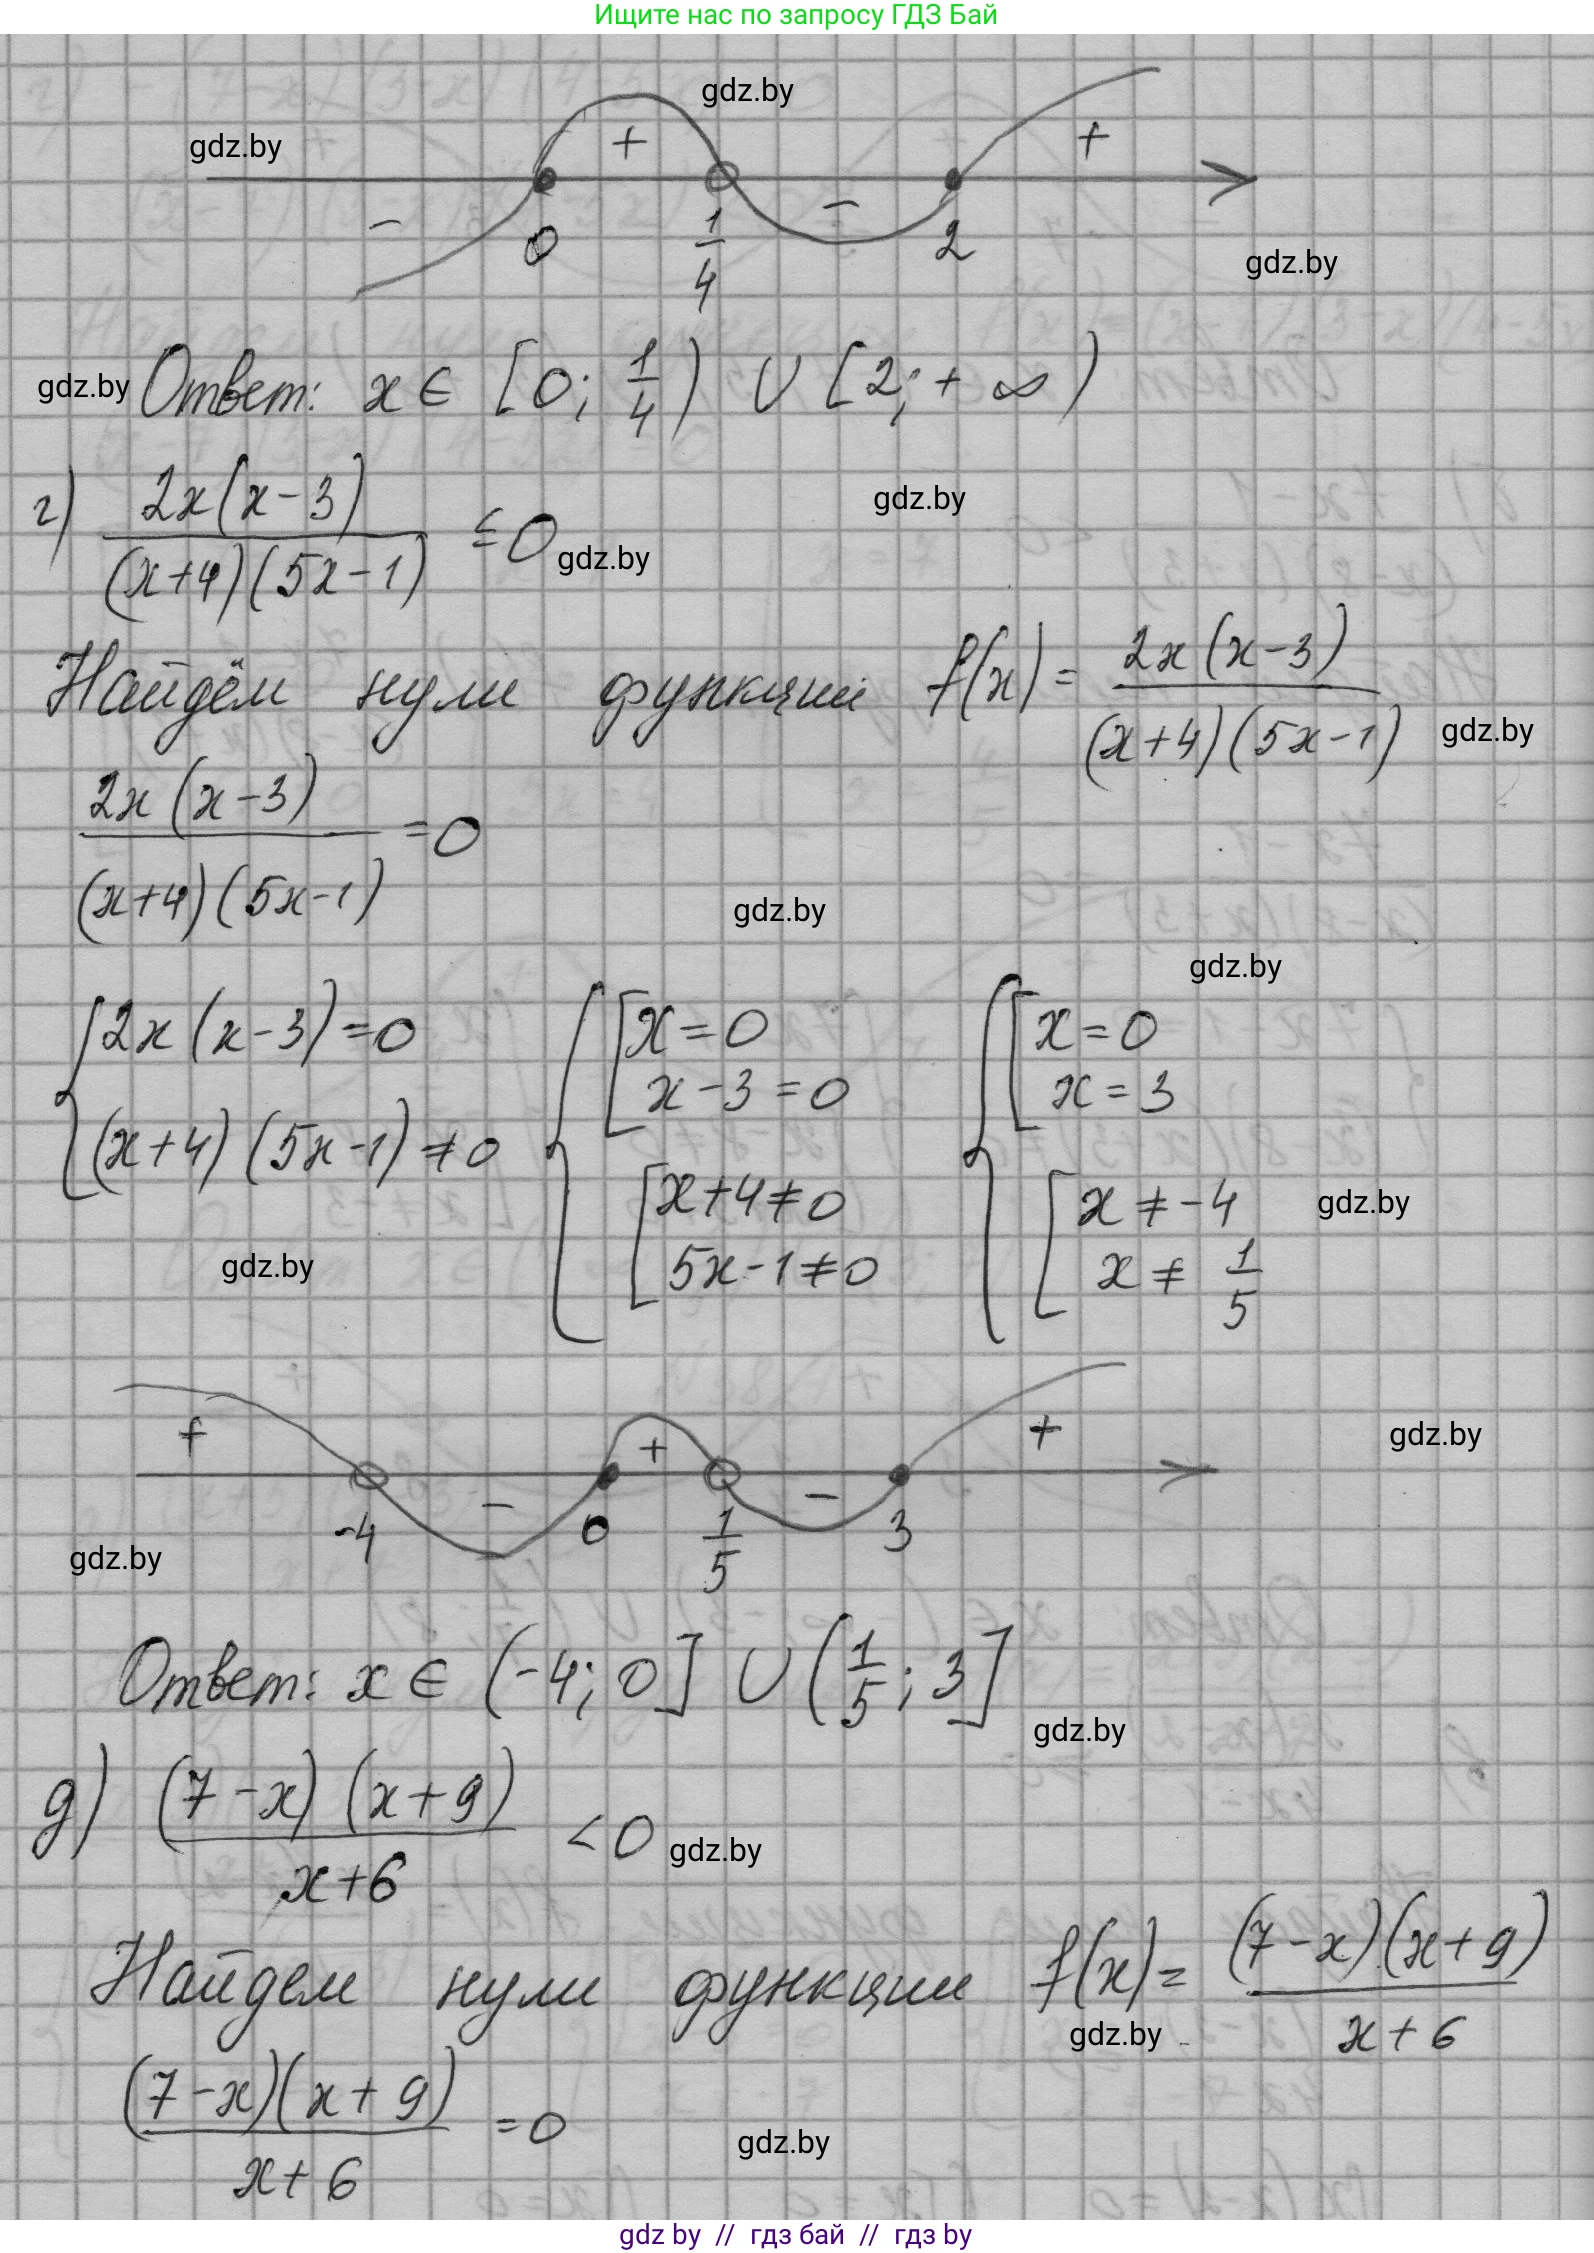 Ищите нас по запросу ГДЗ Бай
gdz.by
gdz.by
+ +
- -
0 1/4 2
gdz.by
gdz.by Ответ: x ∈ [0; 1/4) ∪ [2; +∞)
gdz.by
г) 2x(x-3) / (x+4)(5x-1) ≤ 0 gdz.by
Найдём нули функции f(x) = 2x(x-3) / (x+4)(5x-1) gdz.by
2x(x-3) / (x+4)(5x-1) = 0
gdz.by
gdz.by
{ 2x(x-3)=0 { [ x=0 { [ x=0
x-3=0 x=3
(x+4)(5x-1)≠0 [ x+4≠0 [ x≠-4 gdz.by
gdz.by 5x-1≠0 x≠ 1/5
+ - + - + gdz.by
-4 0 1/5 3
gdz.by
Ответ: x ∈ (-4; 0] ∪ (1/5; 3]
gdz.by
д) (7-x)(x+9) / x+6 < 0 gdz.by
Найдем нули функции f(x) = (7-x)(x+9) / x+6
gdz.by
(7-x)(x+9) / x+6 = 0
gdz.by
gdz by // гдз бай // gdz by